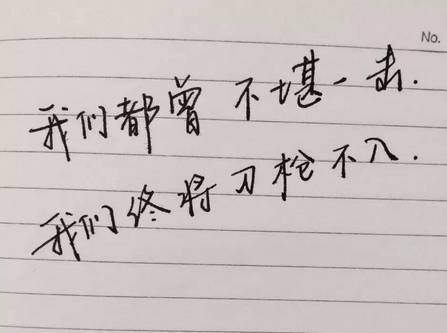 No.
我们都曾 不堪一击.
我们终将刀枪不入.